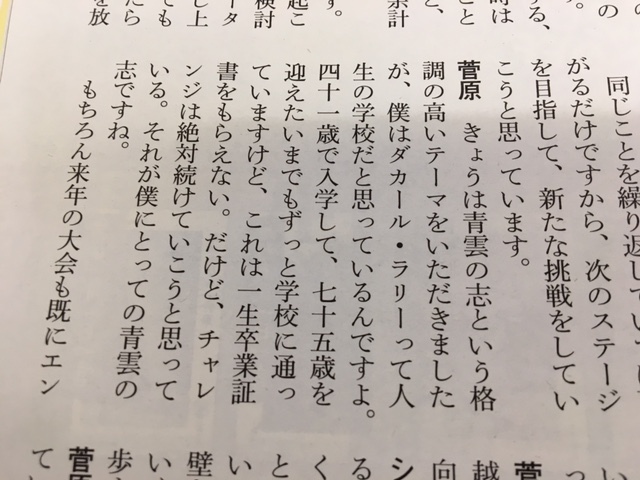 の
す。
する、
時は
こと
と、
余計
す。
起こ
検討
ータ
し上
ても
たら
を放
同じことを繰り返してい
がるだけですから、次のステージ
を目指して、新たな挑戦をしてい
こうと思っています。
菅原　きょうは青雲の志という格
調の高いテーマをいただきました
が、僕はダカール・ラリーって人
生の学校だと思っているんですよ。
四十一歳で入学して、七十五歳を
迎えたいまでもずっと学校に通っ
ていますけど、これは一生卒業証
書をもらえない。だけど、チャレ
ンジは絶対続けていこうと思って
いる。それが僕にとっての青雲の
志ですね。
もちろん来年の大会も既にエン
い
っ
菅
越
向
シ
る
く
と
い
壁
い
歩
菅
て